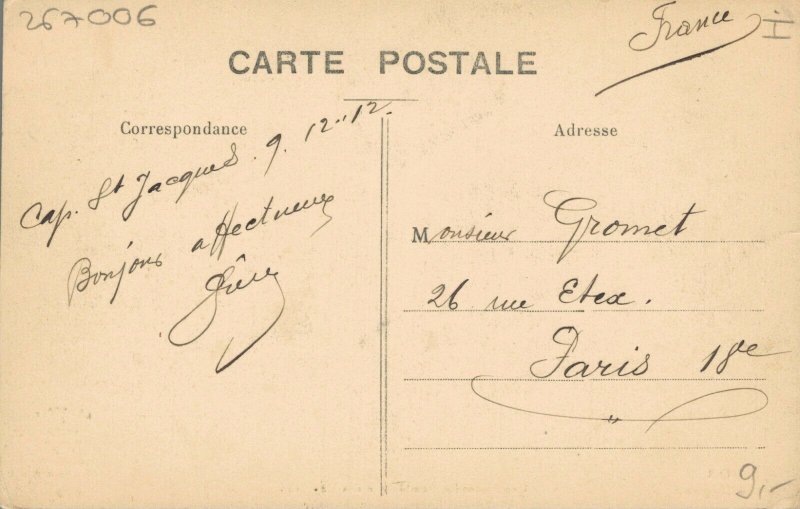 267006
France
I
CARTE POSTALE
Correspondance
Cap. St Jacques. 9. 12.12.
Bonjour affectueux
Adresse
Monsieur Gromet
26 rue Etex.
Paris 18e
"
9,-